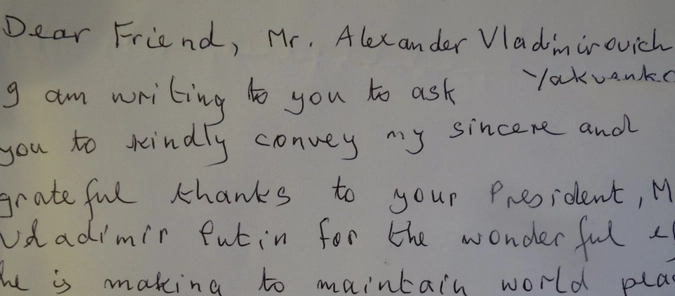 Dear Friend, Mr. Alexander Vladimirovich
Yakvenko
I am writing to you to ask
you to kindly convey my sincere and
grateful thanks to your President, M
Vladimir Putin for the wonderful
he is making to maintain world peac